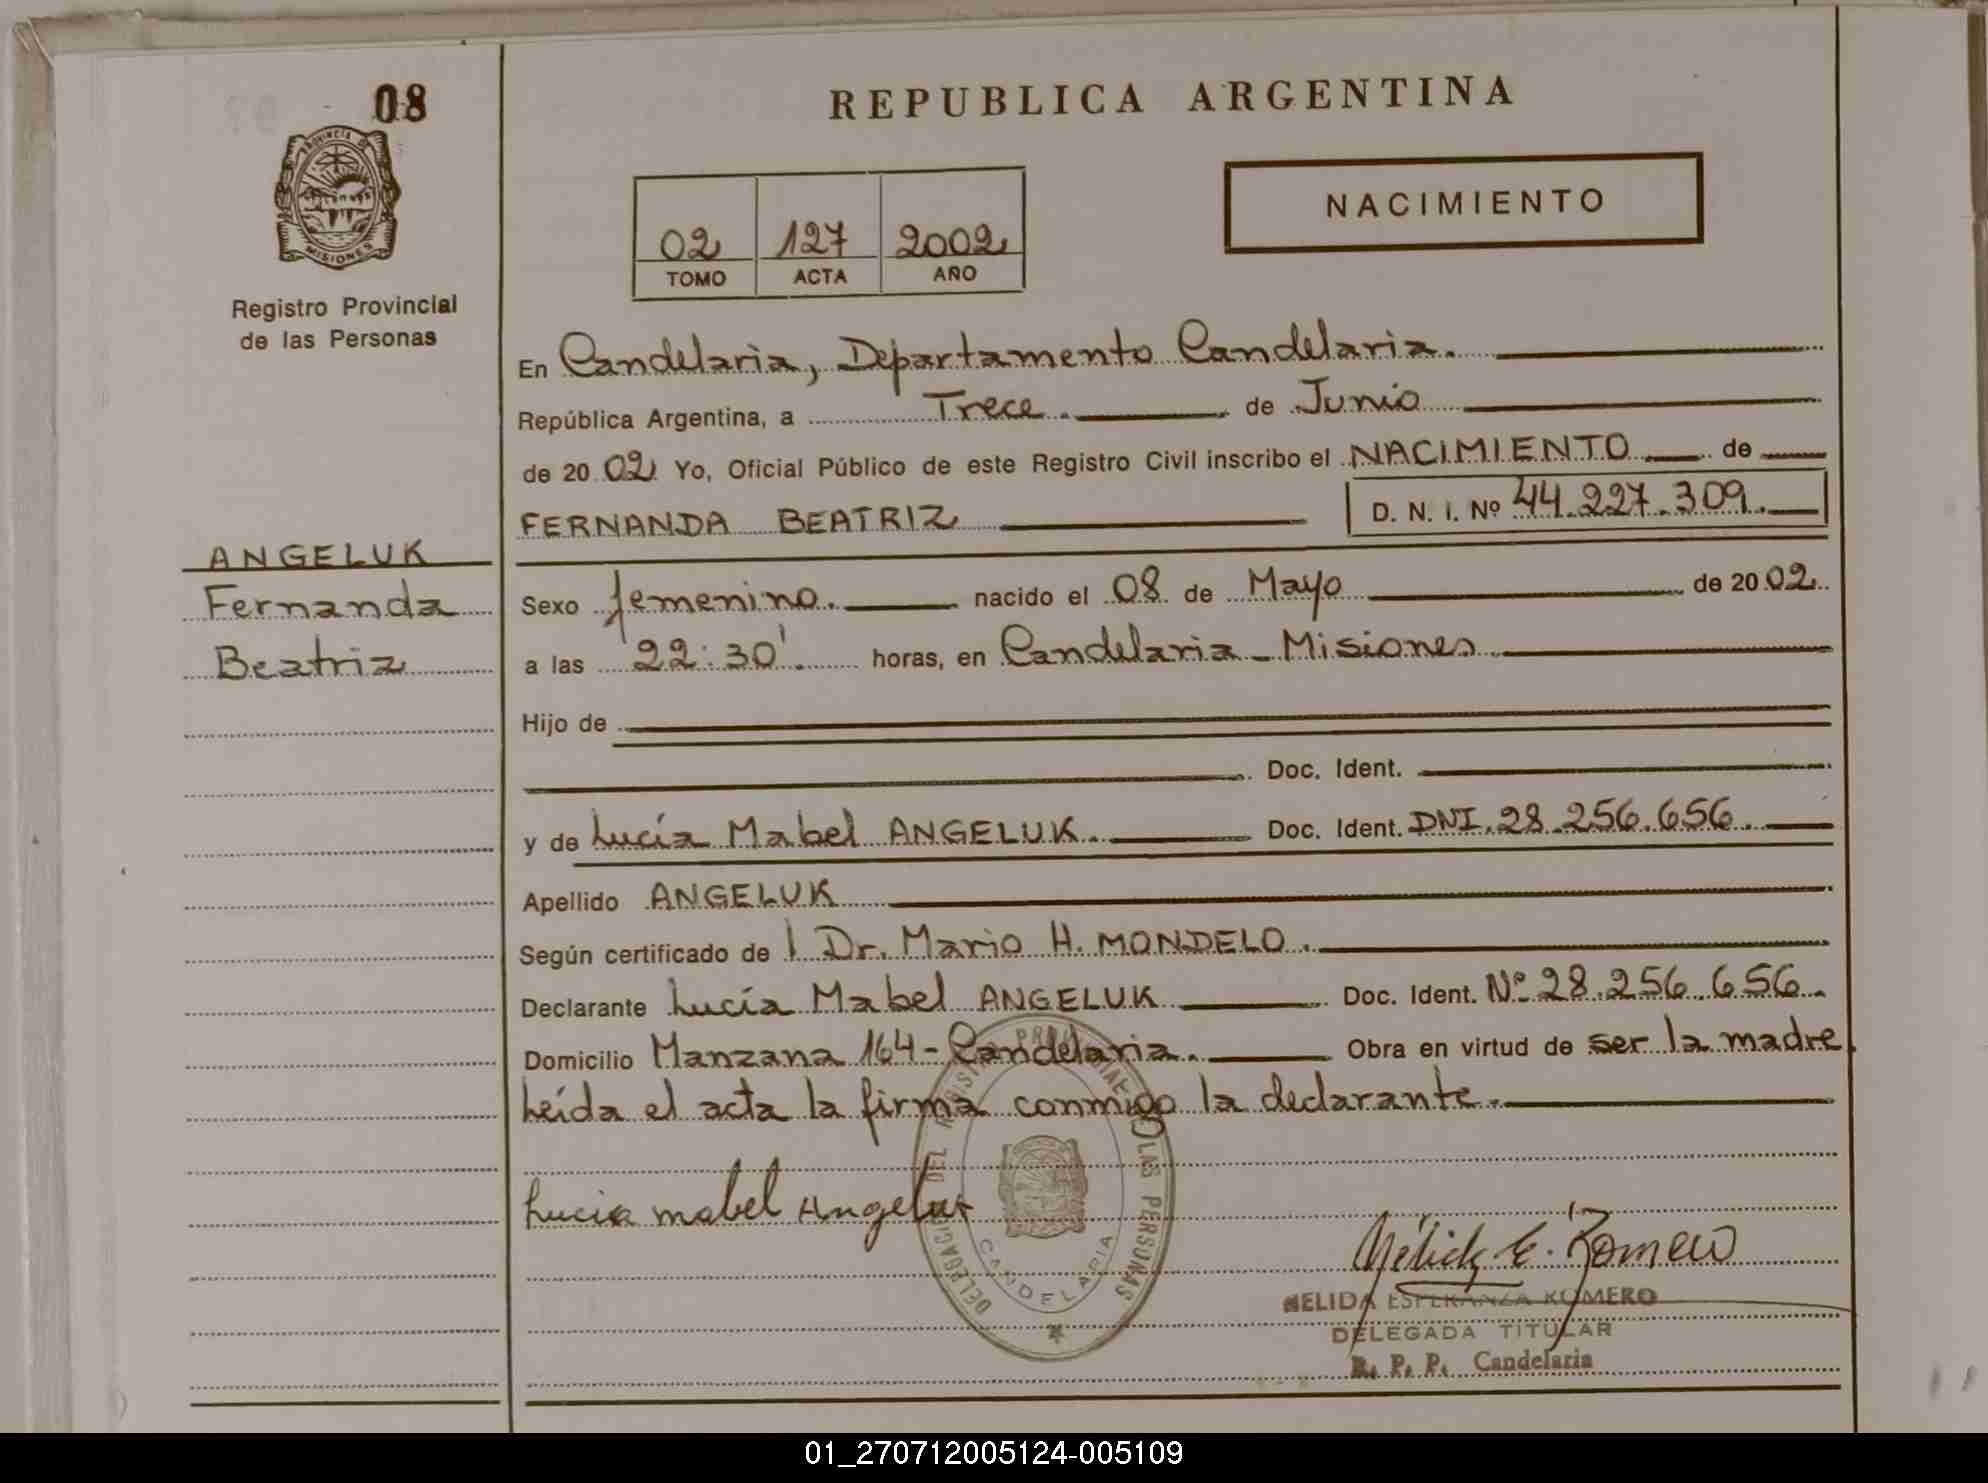 08
PROVINCIA DE
MISIONES
Registro Provincial
de las Personas
ANGELUK
Fernanda
Beatriz
REPUBLICA ARGENTINA
02 127 2002
TOMO ACTA AÑO
NACIMIENTO
En Candelaria, Departamento Candelaria.
República Argentina, a Trece. de Junio
de 20 02 Yo, Oficial Público de este Registro Civil inscribo el NACIMIENTO de
FERNANDA BEATRIZ D. N. I. Nº 44.227.309.
Sexo femenino. nacido el 08 de Mayo de 20 02
a las 22:30'. horas, en Candelaria - Misiones
Hijo de
Doc. Ident.
y de Lucía Mabel ANGELUK. Doc. Ident. DNI. 28.256.656.
Apellido ANGELUK
Según certificado de l Dr. Mario H. MONDELO.
Declarante Lucía Mabel ANGELUK Doc. Ident. Nº 28.256.656.
Domicilio Manzana 164 - Candelaria. Obra en virtud de ser la madre
Leída el acta la firma conmigo la declarante.
Lucia mabel Angeluk
DELEGACION DEL REGISTRO PROVINCIAL DE LAS PERSONAS
CANDELARIA
Nélida E. Romero
NELIDA ESPERANZA ROMERO
DELEGADA TITULAR
R. P. P. Candelaria
01_270712005124-005109